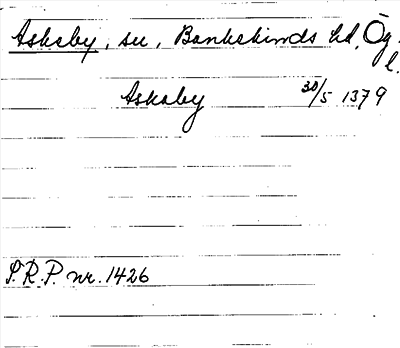 Askeby, sn, Bankekinds hd, Ög.
l.
Askaby 30/5 1379
S.R.P. nr. 1426